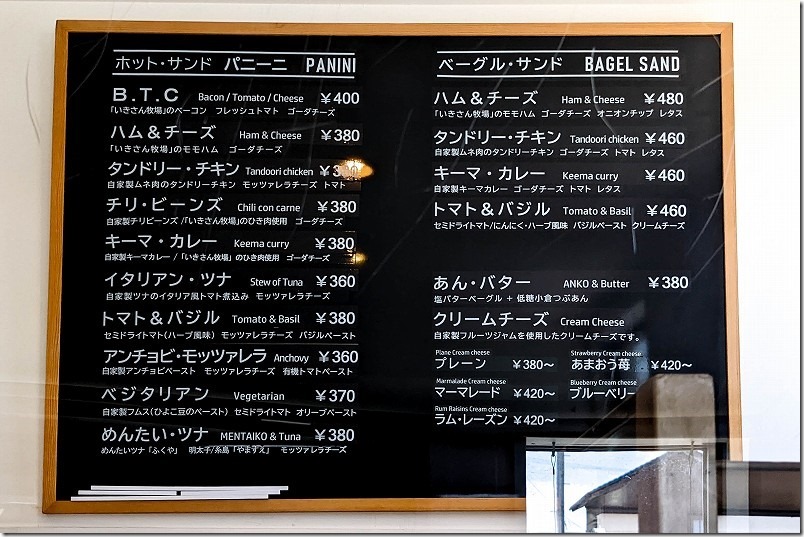 ホット・サンド パニーニ PANINI
B.T.C Bacon / Tomato / Cheese ￥400
「いきさん牧場」のベーコン フレッシュトマト ゴーダチーズ
ハム＆チーズ Ham & Cheese ￥380
「いきさん牧場」のモモハム ゴーダチーズ
タンドリー・チキン Tandoori chicken
自家製ムネ肉のタンドリーチキン モッツァレラチーズ トマト
チリ・ビーンズ Chili con carne ￥380
自家製チリビーンズ /「いきさん牧場」のひき肉使用 ゴーダチーズ
キーマ・カレー Keema curry ￥380
自家製キーマカレー /「いきさん牧場」のひき肉使用 ゴーダチーズ
イタリアン・ツナ Stew of Tuna ￥360
自家製ツナのイタリア風トマト煮込み モッツァレラチーズ
トマト＆バジル Tomato & Basil ￥380
セミドライトマト(ハーブ風味) モッツァレラチーズ バジルペースト
アンチョビ・モッツァレラ Anchovy ￥360
自家製アンチョビペースト モッツァレラチーズ 有機トマトペースト
ベジタリアン Vegetarian ￥370
自家製フムス(ひよこ豆のペースト) セミドライトマト オリーブペースト
めんたい・ツナ MENTAIKO & Tuna ￥380
めんたいツナ「ふくや」 明太子/糸島「やますえ」 モッツァレラチーズ
ベーグル・サンド BAGEL SAND
ハム＆チーズ Ham & Cheese ￥480
「いきさん牧場」のモモハム ゴーダチーズ オニオンチップ レタス
タンドリー・チキン Tandoori chicken ￥460
自家製ムネ肉のタンドリーチキン ゴーダチーズ トマト レタス
キーマ・カレー Keema curry ￥460
自家製キーマカレー ゴーダチーズ トマト レタス
トマト＆バジル Tomato & Basil ￥460
セミドライトマト/にんにく・ハーブ風味 バジルペースト クリームチーズ
あん・バター ANKO & Butter ￥380
塩バターベーグル + 低糖小倉つぶあん
クリームチーズ Cream Cheese
自家製フルーツジャムを使用したクリームチーズです。
Plane Cream cheese
プレーン ￥380～
Strawberry Cream cheese
あまおう苺 ￥420～
Marmalade Cream cheese
マーマレード ￥420～
Blueberry Cream cheese
ブルーベリー
Rum Raisins Cream cheese
ラム・レーズン ￥420～